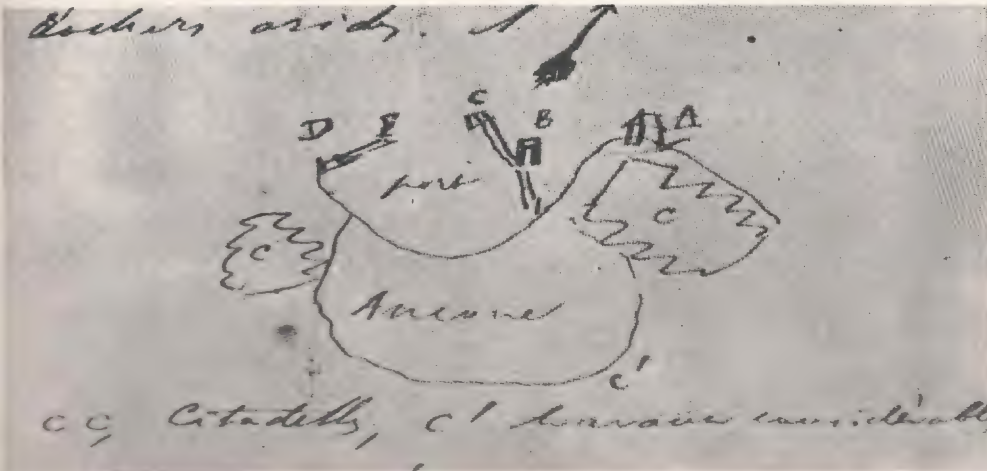 rochers arides. A
C
D E B A
port
C
C
Ancone
C'
CC, Citadelles, C' travaux considérables